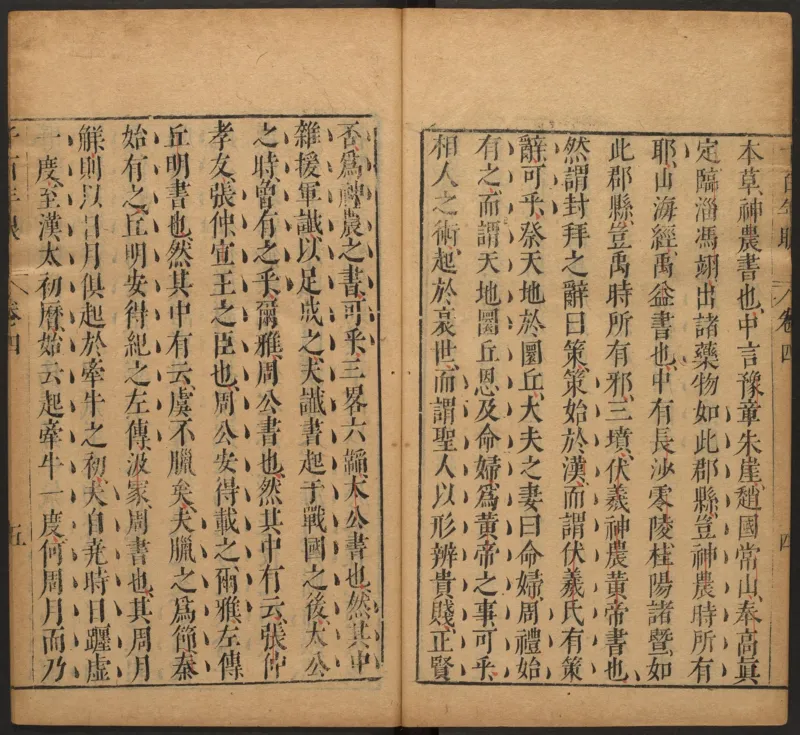 千百年眼 卷四 四
本草神農書也中言豫章朱崖趙國常山奉高眞
定臨淄馮翊出諸藥物如此郡縣豈神農時所有
耶山海經禹益書也中有長沙零陵桂陽諸暨如
此郡縣豈禹時所有邪三墳伏羲神農黃帝書也
然謂封拜之辭曰策策始於漢而謂伏羲氏有策
辭可乎祭天地於圜丘大夫之妻曰命婦周禮始
有之而謂天地圜丘恩及命婦爲黃帝之事可乎
相人之術起於衰世而謂聖人以形辨貴賤正賢
否爲神農之書可乎三畧六韜太公書也然其中
雜援軍讖以足成之夫讖書起于戰國之後太公
之時曾有之乎爾雅周公書也然其中有云張仲
孝友張仲宣王之臣也周公安得載之爾雅左傳
丘明書也然其中有云虞不臘矣夫臘之爲節秦
始有之丘明安得紀之左傳汲冢周書也其周月
觧則以日月俱起於牽牛之初夫自堯時日躔虛
一度至漢太初曆始云起牽牛一度何周月而乃
千百年眼 卷四 五